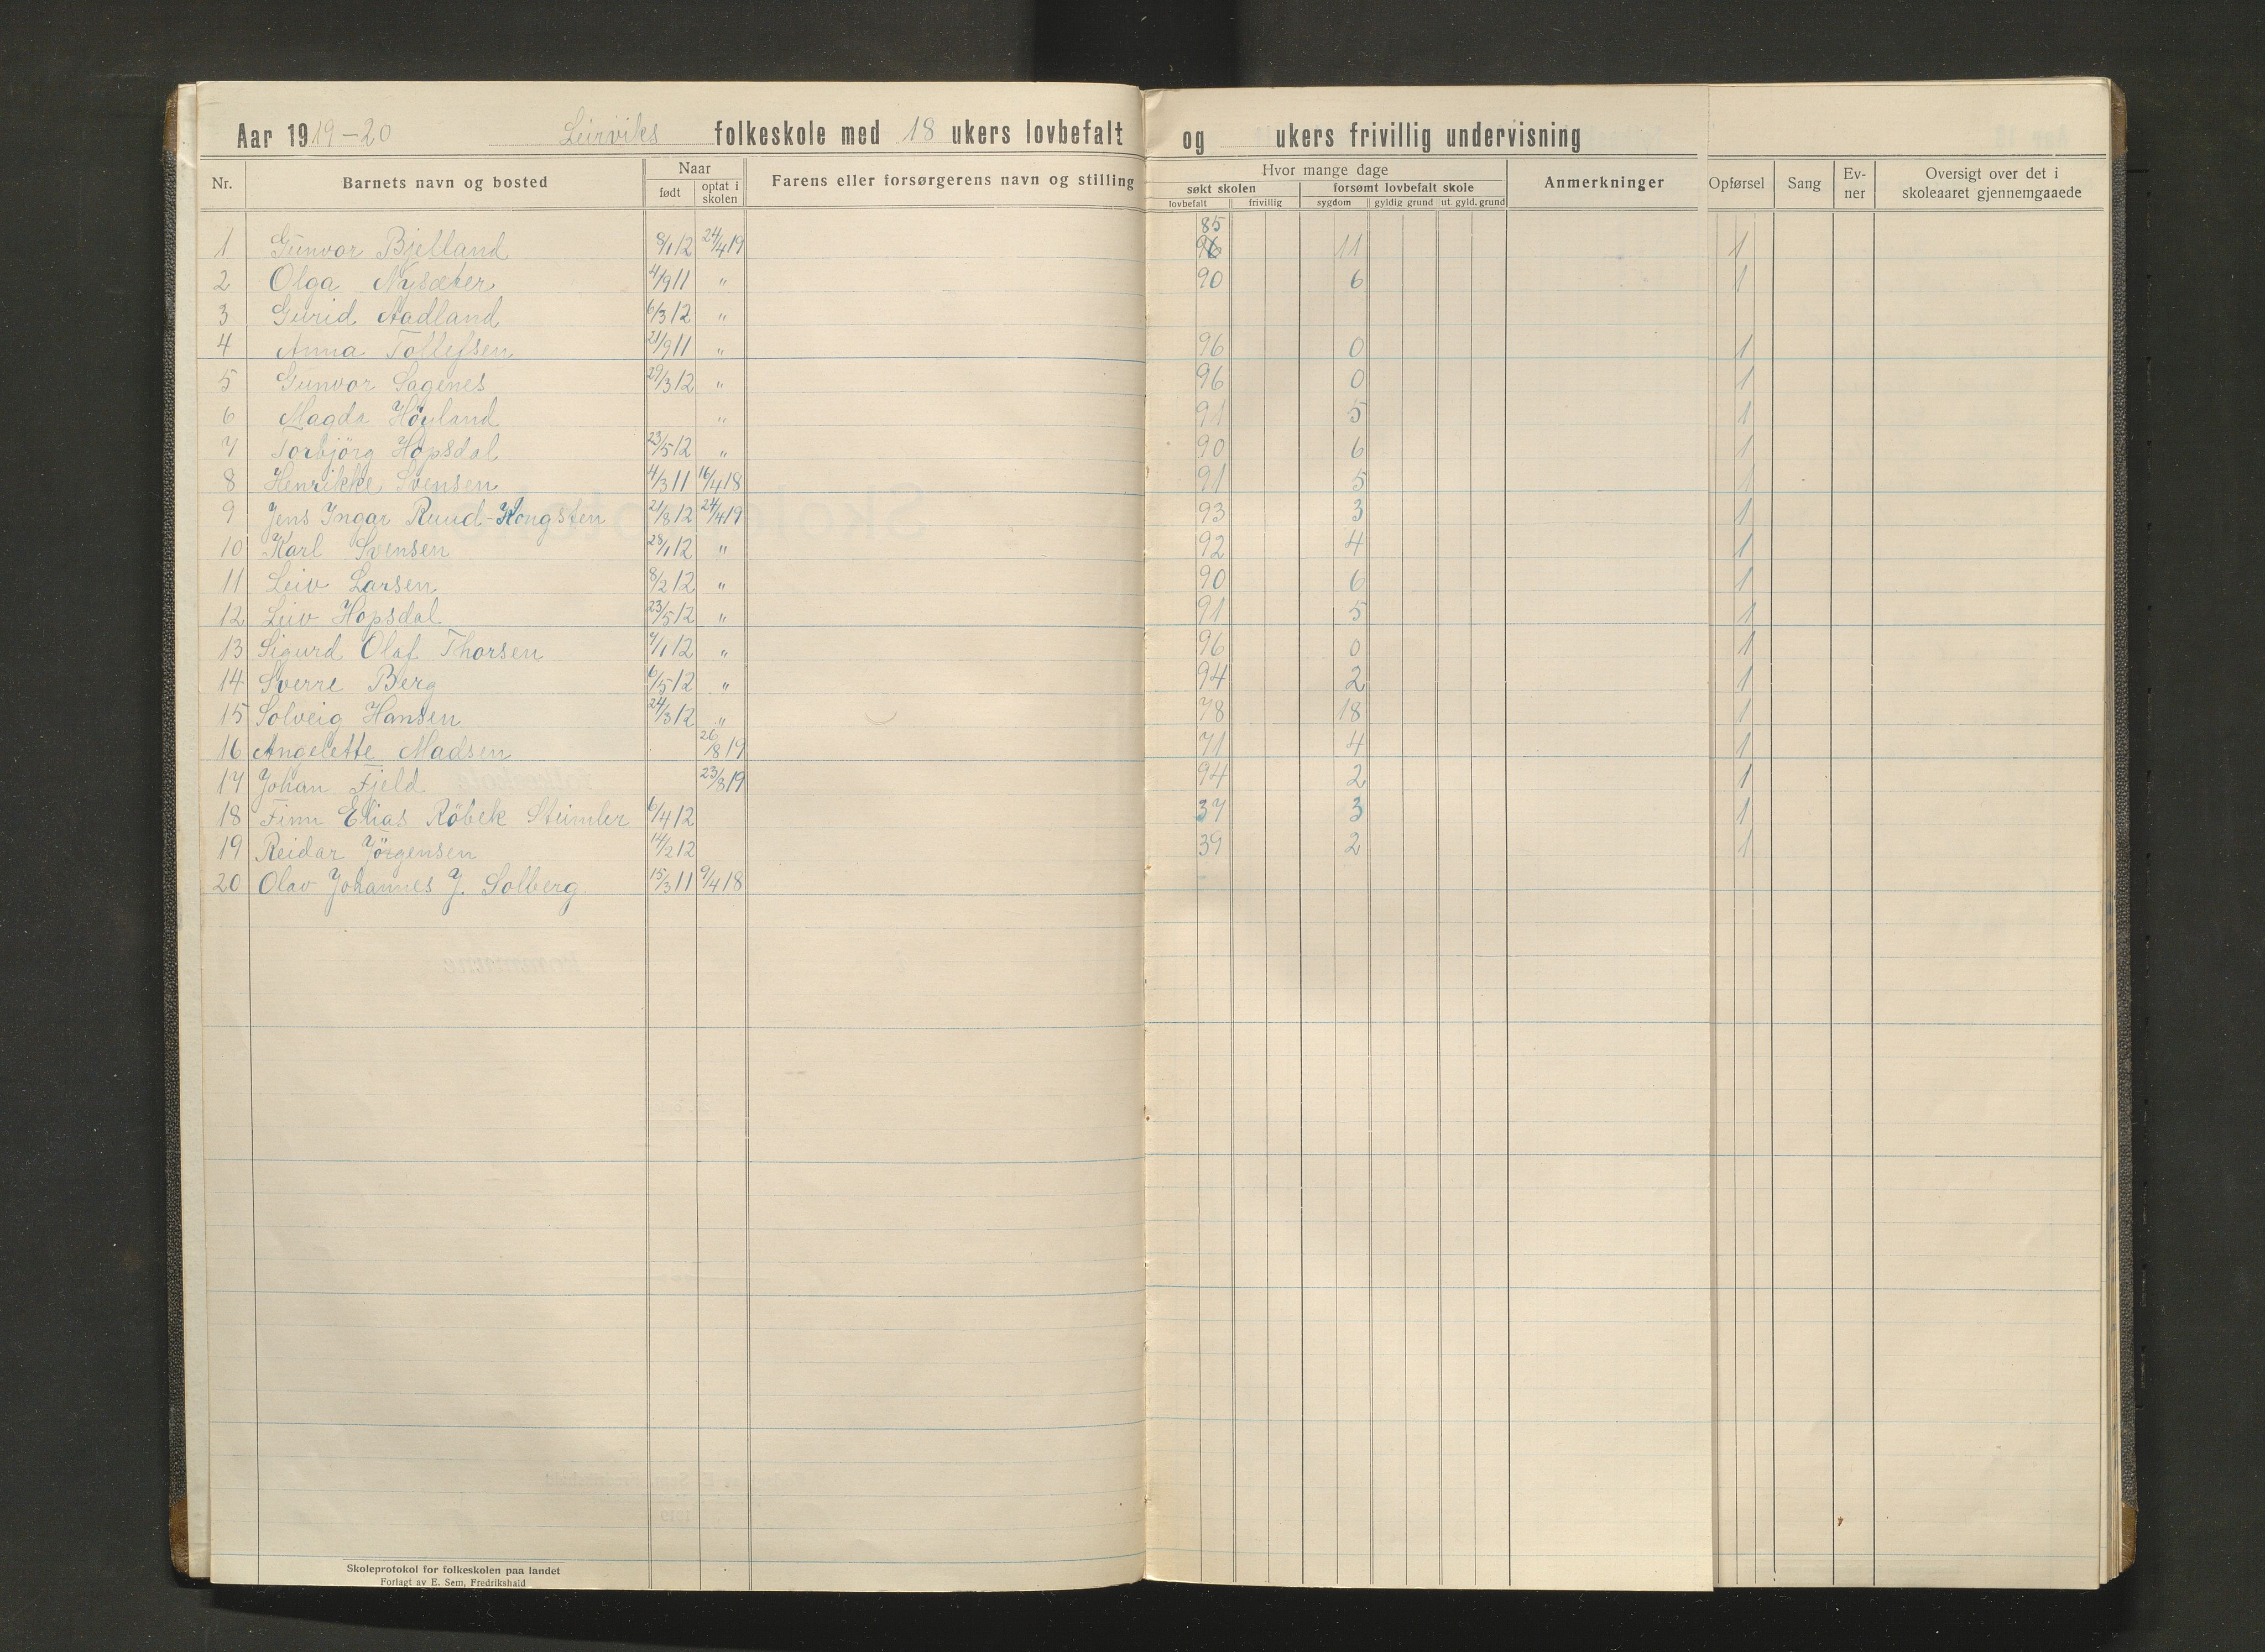 Aar 1919-20 Leirviks folkeskole med 18 ukers lovbefalt og ukers frivillig undervisning
Nr. Barnets navn og bosted Naar født optat i skolen Farens eller forsørgerens navn og stilling Hvor mange dage søkt skolen lovbefalt frivillig forsømt lovbefalt skole sygdom gyldig grund ut. gyld. grund Anmerkninger Opførsel Sang Ev-ner Oversigt over det i skoleaaret gjennemgaaede
85
1 Gunvor Bjelland 8/1 12 24/4 19 96 11 1
2 Olga Nysæter 4/9 11 " 90 6 1
3 Gurid Aadland 6/3 12 "
4 Anna Tollefsen 21/9 11 " 96 0 1
5 Gunvor Sagenes 29/3 12 " 96 0 1
6 Magda Höyland " 91 5 1
7 Torbjörg Hopsdal 23/5 12 " 90 6 1
8 Henrikke Svensen 4/3 11 16/4 18 91 5 1
9 Jens Ingar Ruud-Kongsten 21/8 12 24/4 19 93 3 1
10 Karl Svensen 28/1 12 " 92 4 1
11 Leiv Larsen 8/2 12 " 90 6 1
12 Leiv Hopsdal 23/5 12 " 91 5 1
13 Sigurd Olaf Thorsen 7/1 12 " 96 0 1
14 Sverre Berg 6/5 12 " 94 2 1
15 Solveig Hansen 24/3 12 " 78 18 1
16 Angelette Madsen 26/8 19 71 4 1
17 Johan Fjeld 23/8 19 94 2 1
18 Finn Elias Röbek Steimler 6/4 12 37 3 1
19 Reidar Jörgensen 14/2 12 39 2 1
20 Olav Johannes J. Solberg 15/3 11 9/4 18
Skoleprotokol for folkeskolen paa landet
Forlagt av E. Sem, Fredrikshald